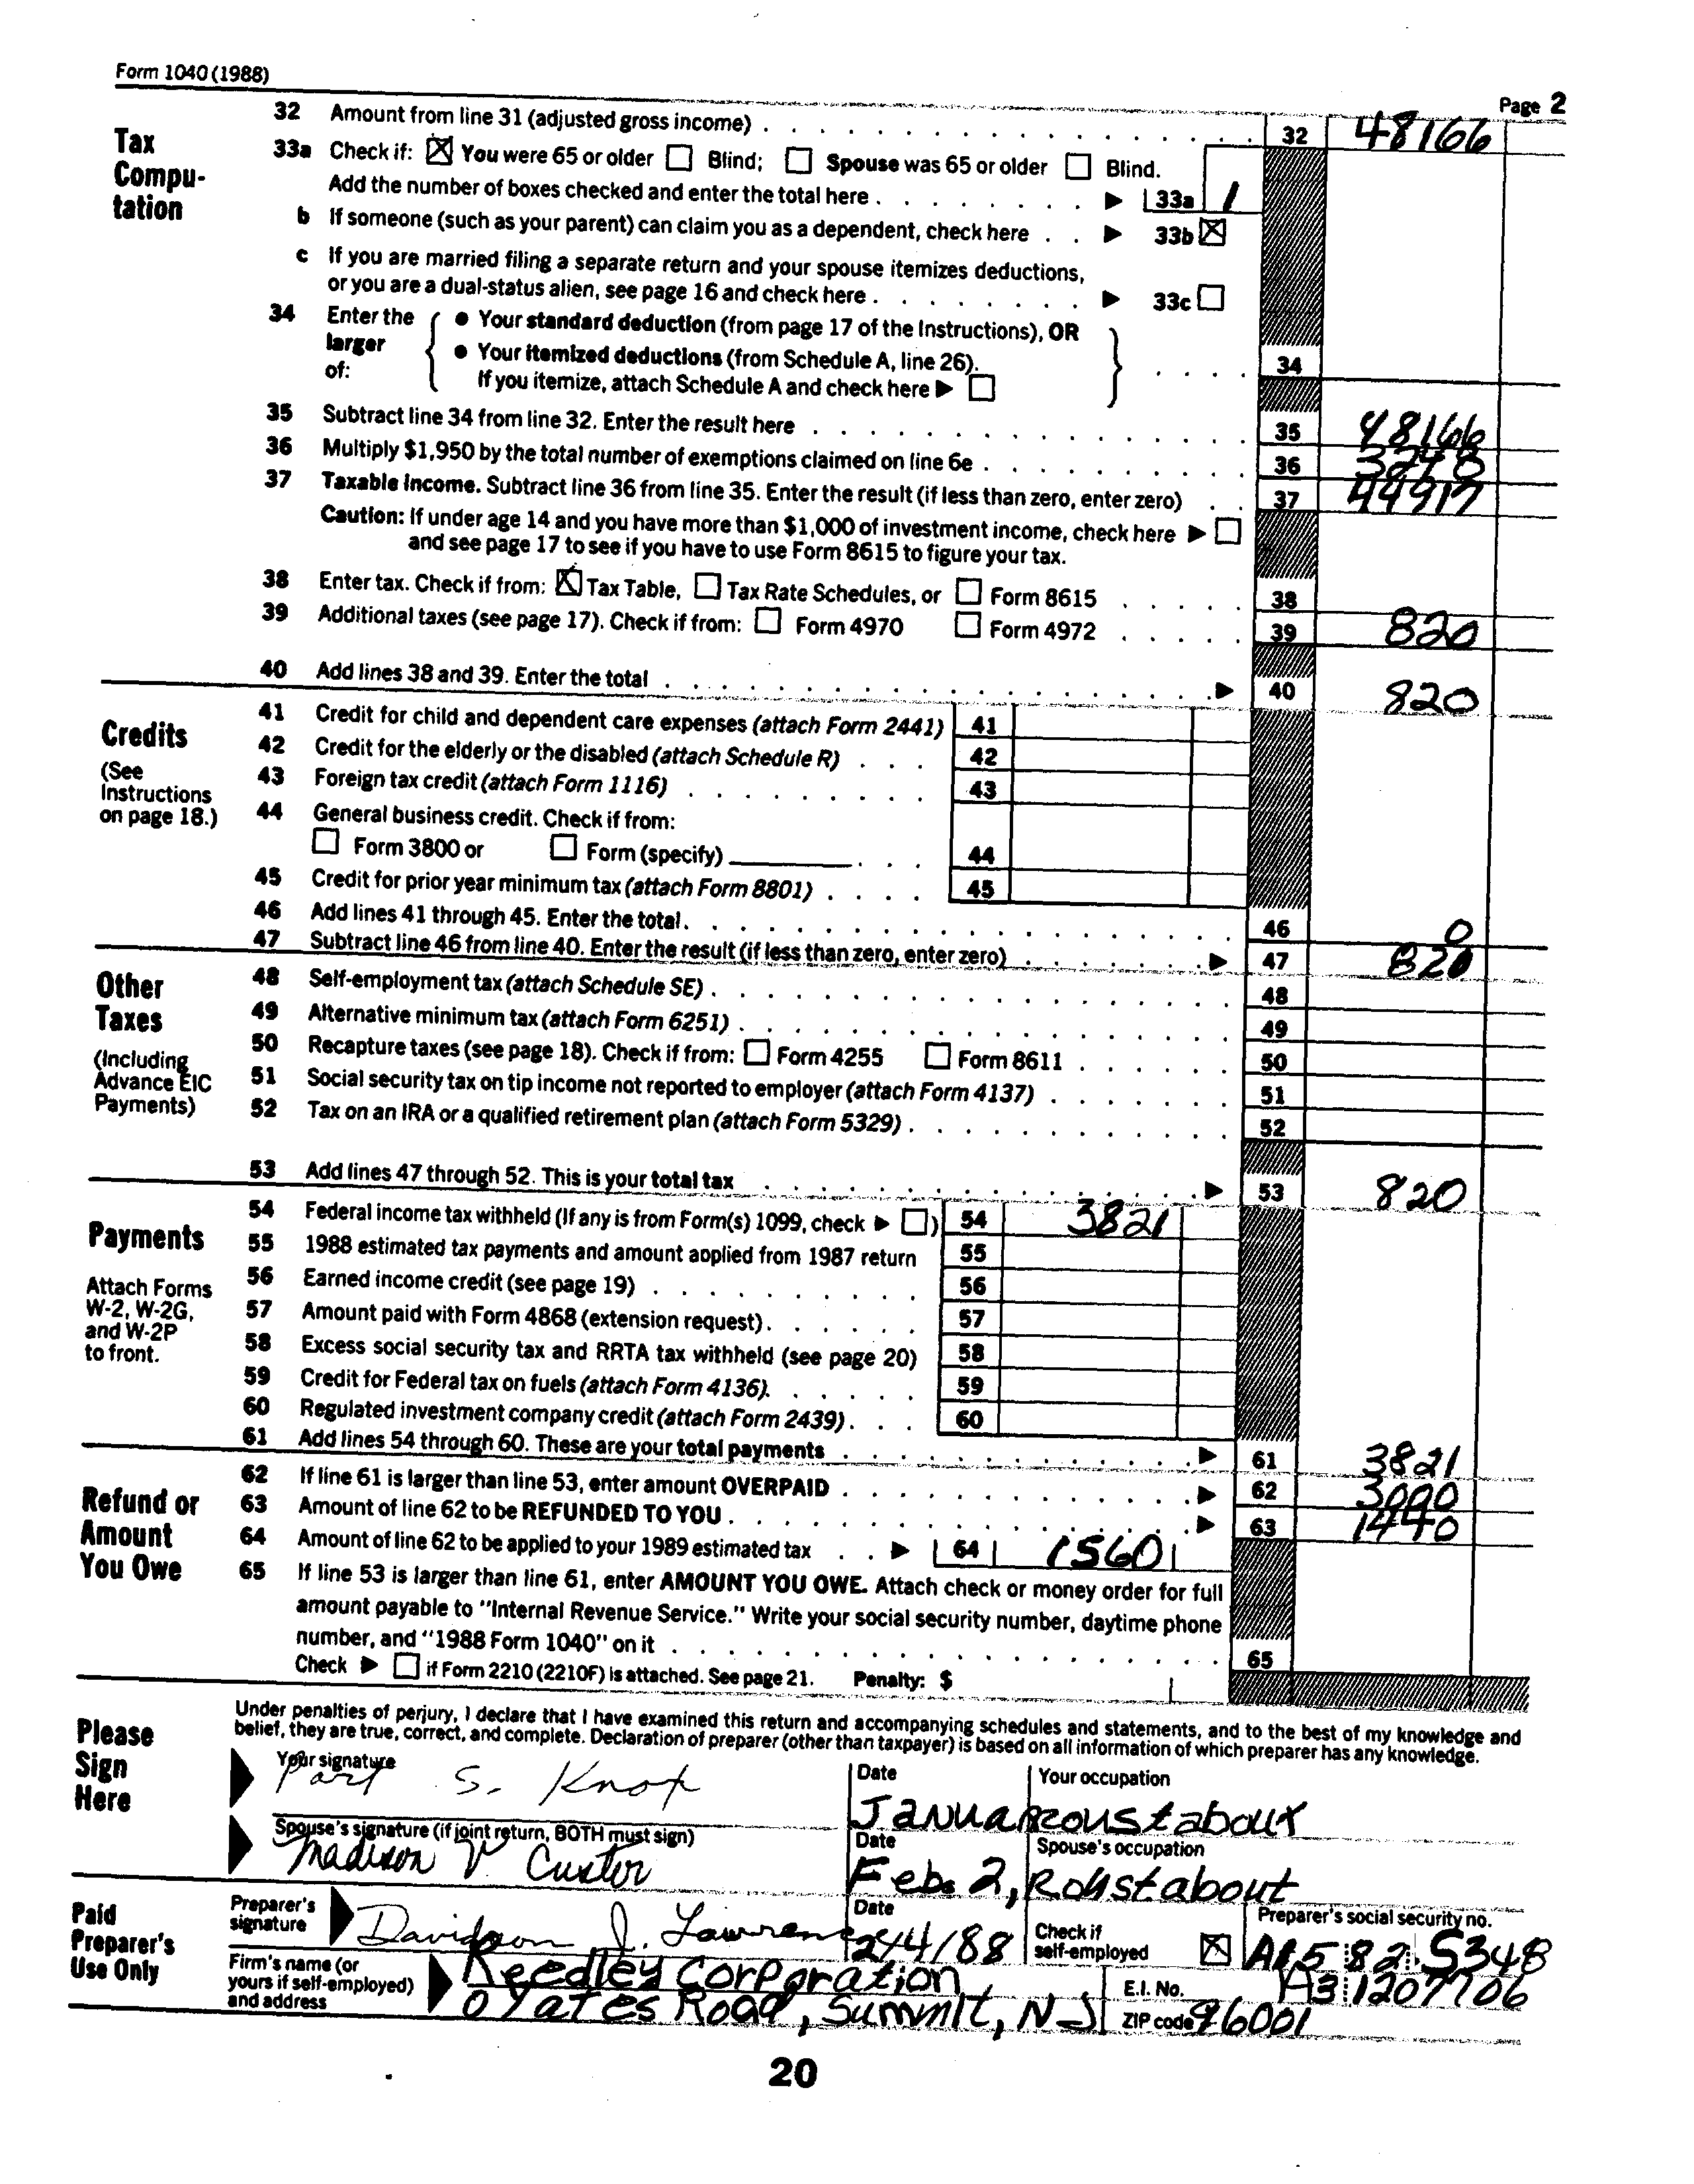 Form 1040 (1988)
Page 2
Tax Compu-tation
32 Amount from line 31 (adjusted gross income) . . . 32 48166
33a Check if: ☒ You were 65 or older ☐ Blind; ☐ Spouse was 65 or older ☐ Blind.
Add the number of boxes checked and enter the total here . . . ▶ 33a 1
b If someone (such as your parent) can claim you as a dependent, check here . . ▶ 33b ☒
c If you are married filing a separate return and your spouse itemizes deductions,
or you are a dual-status alien, see page 16 and check here . . . ▶ 33c ☐
34 Enter the larger of:
● Your standard deduction (from page 17 of the Instructions), OR
● Your itemized deductions (from Schedule A, line 26).
If you itemize, attach Schedule A and check here ▶ ☐ . . . . 34
35 Subtract line 34 from line 32. Enter the result here . . . 35 48166
36 Multiply $1,950 by the total number of exemptions claimed on line 6e . . . 36 3248
37 Taxable income. Subtract line 36 from line 35. Enter the result (if less than zero, enter zero) . . 37 44917
Caution: If under age 14 and you have more than $1,000 of investment income, check here ▶ ☐
and see page 17 to see if you have to use Form 8615 to figure your tax.
38 Enter tax. Check if from: ☒ Tax Table, ☐ Tax Rate Schedules, or ☐ Form 8615 . . . 38
39 Additional taxes (see page 17). Check if from: ☐ Form 4970 ☐ Form 4972 . . . 39 820
40 Add lines 38 and 39. Enter the total . . . ▶ 40 820
Credits
(See Instructions on page 18.)
41 Credit for child and dependent care expenses (attach Form 2441) 41
42 Credit for the elderly or the disabled (attach Schedule R) . . . 42
43 Foreign tax credit (attach Form 1116) . . . 43
44 General business credit. Check if from:
☐ Form 3800 or ☐ Form (specify) ______ . . . 44
45 Credit for prior year minimum tax (attach Form 8801) . . . . 45
46 Add lines 41 through 45. Enter the total . . . 46 0
47 Subtract line 46 from line 40. Enter the result (if less than zero, enter zero) . . . ▶ 47 820
Other Taxes
(Including Advance EIC Payments)
48 Self-employment tax (attach Schedule SE) . . . 48
49 Alternative minimum tax (attach Form 6251) . . . 49
50 Recapture taxes (see page 18). Check if from: ☐ Form 4255 ☐ Form 8611 . . . 50
51 Social security tax on tip income not reported to employer (attach Form 4137) . . . 51
52 Tax on an IRA or a qualified retirement plan (attach Form 5329) . . . 52
53 Add lines 47 through 52. This is your total tax . . . ▶ 53 820
Payments
Attach Forms W-2, W-2G, and W-2P to front.
54 Federal income tax withheld (If any is from Form(s) 1099, check ▶ ☐ ) 54 3821
55 1988 estimated tax payments and amount applied from 1987 return 55
56 Earned income credit (see page 19) . . . 56
57 Amount paid with Form 4868 (extension request) . . . 57
58 Excess social security tax and RRTA tax withheld (see page 20) 58
59 Credit for Federal tax on fuels (attach Form 4136) . . . 59
60 Regulated investment company credit (attach Form 2439) . . . 60
61 Add lines 54 through 60. These are your total payments . . . ▶ 61 3821
Refund or Amount You Owe
62 If line 61 is larger than line 53, enter amount OVERPAID . . . ▶ 62 3000
63 Amount of line 62 to be REFUNDED TO YOU . . . ▶ 63 1440
64 Amount of line 62 to be applied to your 1989 estimated tax . . ▶ 64 1560
65 If line 53 is larger than line 61, enter AMOUNT YOU OWE. Attach check or money order for full
amount payable to "Internal Revenue Service." Write your social security number, daytime phone
number, and "1988 Form 1040" on it . . . 65
Check ▶ ☐ if Form 2210 (2210F) is attached. See page 21. Penalty: $
Please Sign Here
Under penalties of perjury, I declare that I have examined this return and accompanying schedules and statements, and to the best of my knowledge and
belief, they are true, correct, and complete. Declaration of preparer (other than taxpayer) is based on all information of which preparer has any knowledge.
Your signature S. Knox
Date
Your occupation Roustabout
Spouse's signature (if joint return, BOTH must sign) Madison V. Custer
Date Feb. 2,
Spouse's occupation Roustabout
Paid Preparer's Use Only
Preparer's signature Davidson J. Lawrence
Date 2/4/88
Check if self-employed ☒
Preparer's social security no. A15 82 5348
Firm's name (or yours if self-employed) and address
Reedley Corporation
0 Yates Road, Summit, NJ
E.I. No. A3 1207706
ZIP code 96001
20